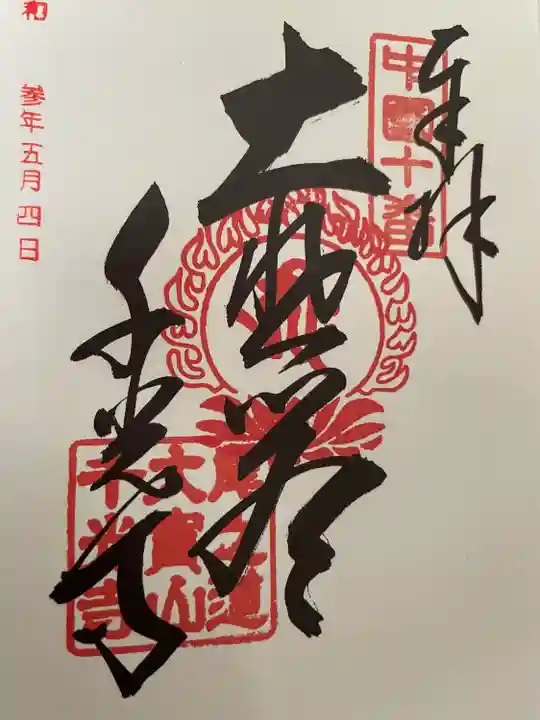 奉拝
中国十番
大悲閣
千光寺
尾之道
大寶山
千光寺
和 参年五月四日